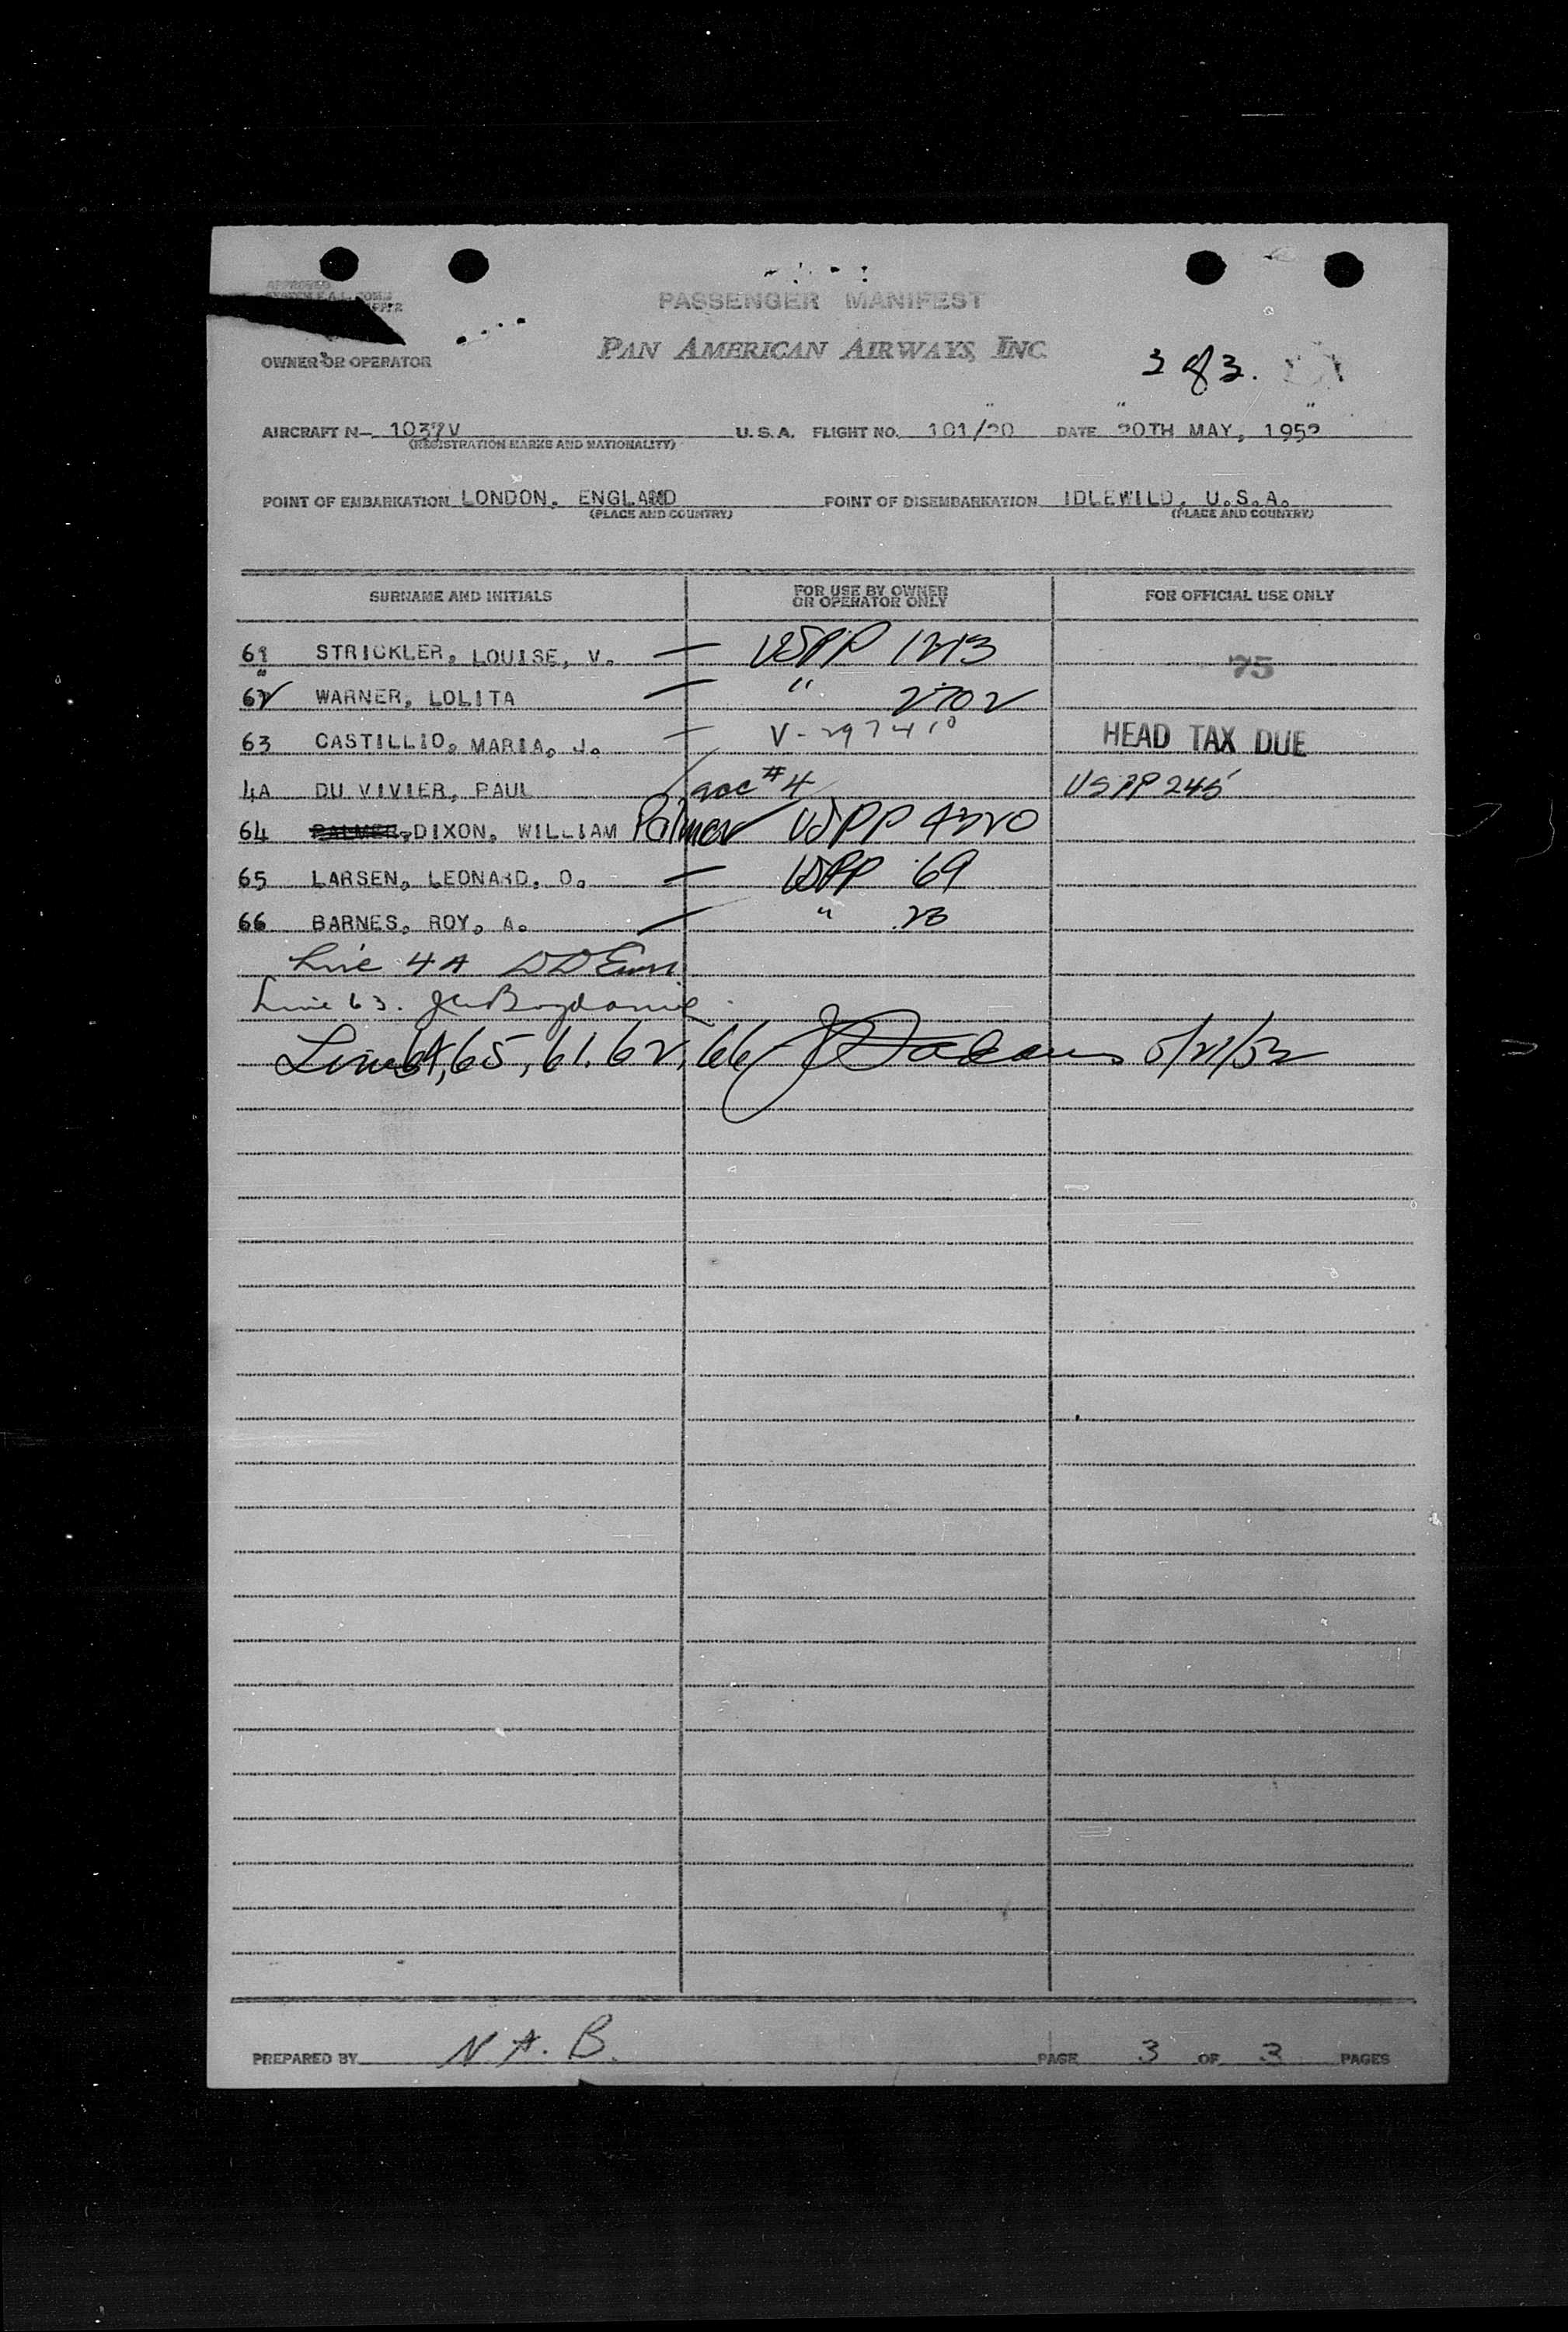 APPROVED
PASSENGER MANIFEST
PAN AMERICAN AIRWAYS, INC.
OWNER OR OPERATOR
3 of 3.
AIRCRAFT N— 1037V U. S. A. FLIGHT NO. 101/20 DATE 20TH MAY, 1952
(REGISTRATION MARKS AND NATIONALITY)
POINT OF EMBARKATION LONDON, ENGLAND POINT OF DISEMBARKATION IDLEWILD, U.S.A.
(PLACE AND COUNTRY) (PLACE AND COUNTRY)
SURNAME AND INITIALS FOR USE BY OWNER OR OPERATOR ONLY FOR OFFICIAL USE ONLY
61 STRICKLER, LOUISE, V. — USPP 1243
75
62 WARNER, LOLITA — " 2702
63 CASTILLIO, MARIA, J. — V-297410 HEAD TAX DUE
4A DU VIVIER, PAUL acc #4 USPP 245
64 PALMER, DIXON, WILLIAM Palmer USPP 4320
65 LARSEN, LEONARD, O. — USPP 69
66 BARNES, ROY, A. — " 23
Line 4A
Line 63.
Lines 64, 65, 61, 62, 66 5/21/52
PREPARED BY N. A. B. PAGE 3 OF 3 PAGES